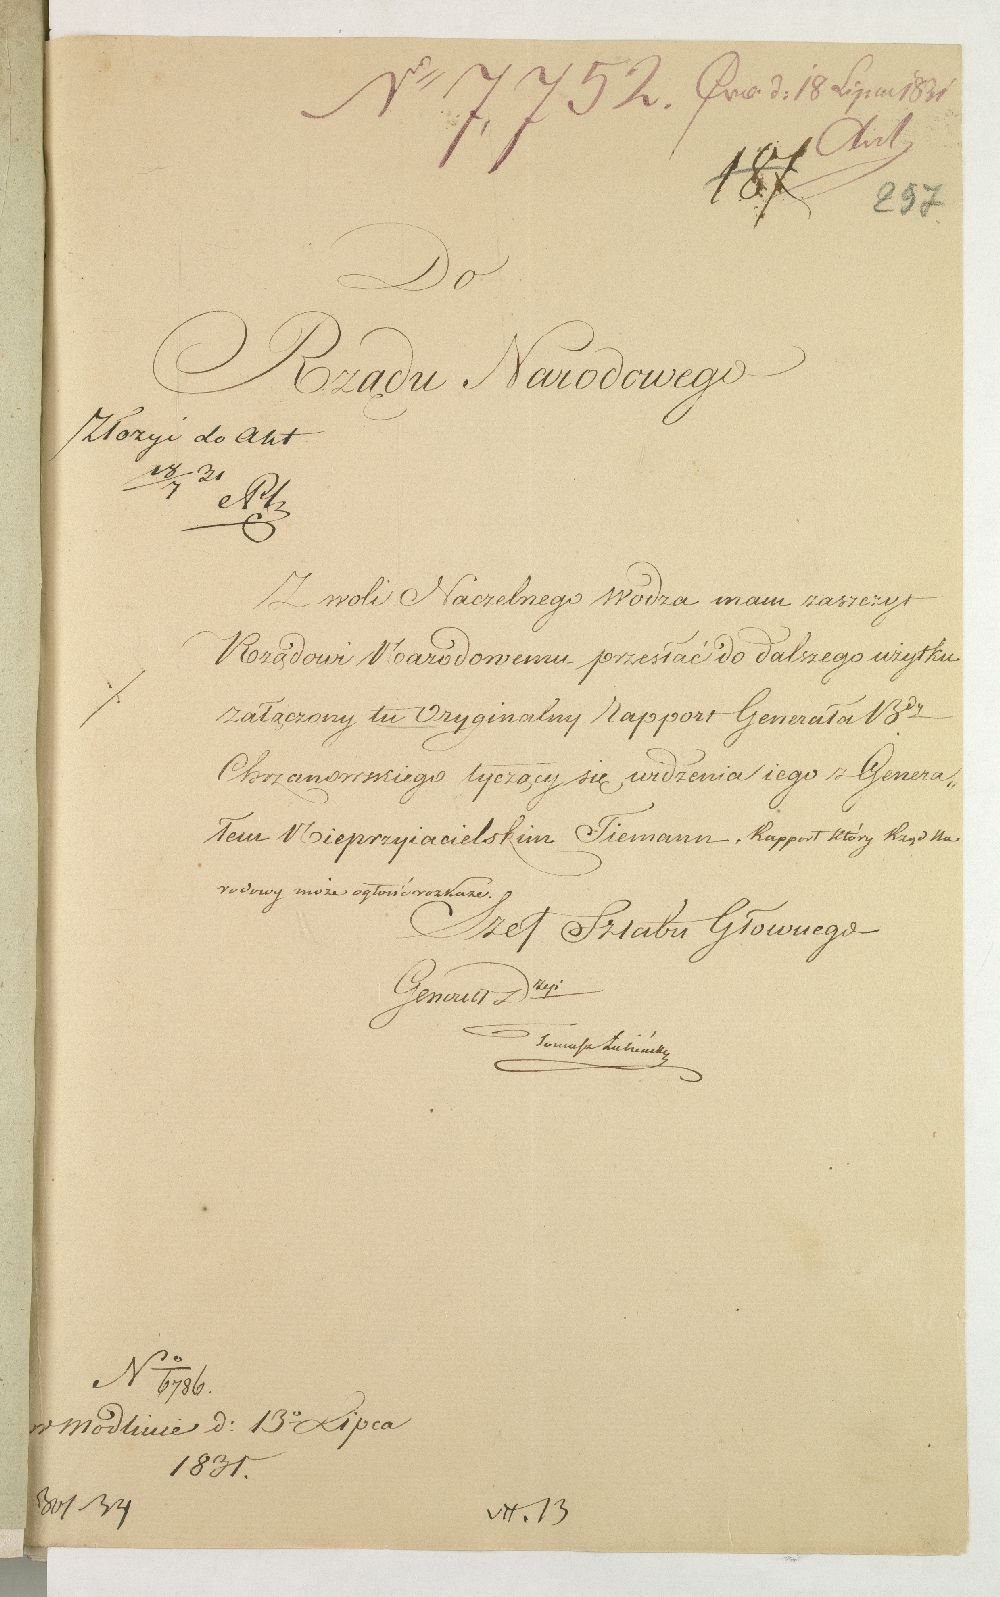 Nº 7,752. d: 18 Lipca 1831
187
257.
Do
Rządu Narodowego
Złożyć do Akt
18/7 31
Z woli Naczelnego Wodza mam zaszczyt
Rządowi Narodowemu przesłać do dalszego użytku
załączony tu Oryginalny Rapport Generała Bdy
Chrzanowskiego tyczący się widzenia iego z Genera„
łem Nieprzyiacielskim Tiemann. Rapport który Rząd Na
rodowy może ogłosić rozkaże.
Szef Sztabu Głownego
Generał Dyzyi
Tomasz Łubieński
Nº 6786.
w Modlinie d: 13º Lipca
1831.
34
VII.13